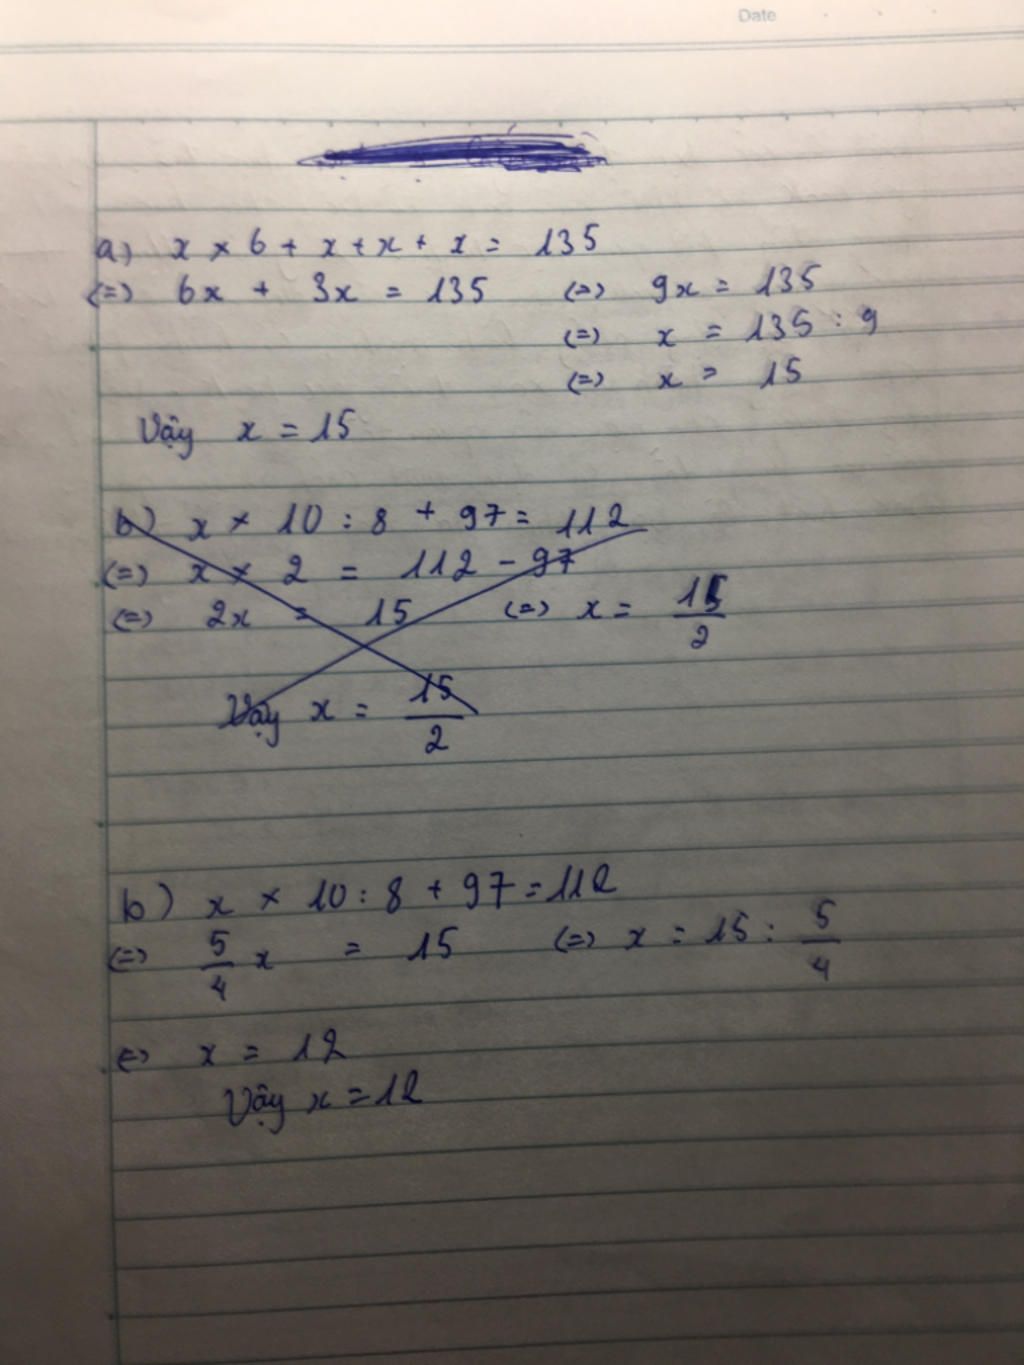 Date
a) x × 6 + x + x + x = 135
(=) 6x + 3x = 135 (=) 9x = 135
(=) x = 135 : 9
(=) x = 15
Vậy x = 15
b) x × 10 : 8 + 97 = 112
(=) x × 2 = 112 - 97
(=) 2x = 15 (=) x = 15/2
Vậy x = 15/2
b) x × 10 : 8 + 97 = 112
(=) 5/4 x = 15 (=) x = 15 : 5/4
(=) x = 12
Vậy x = 12